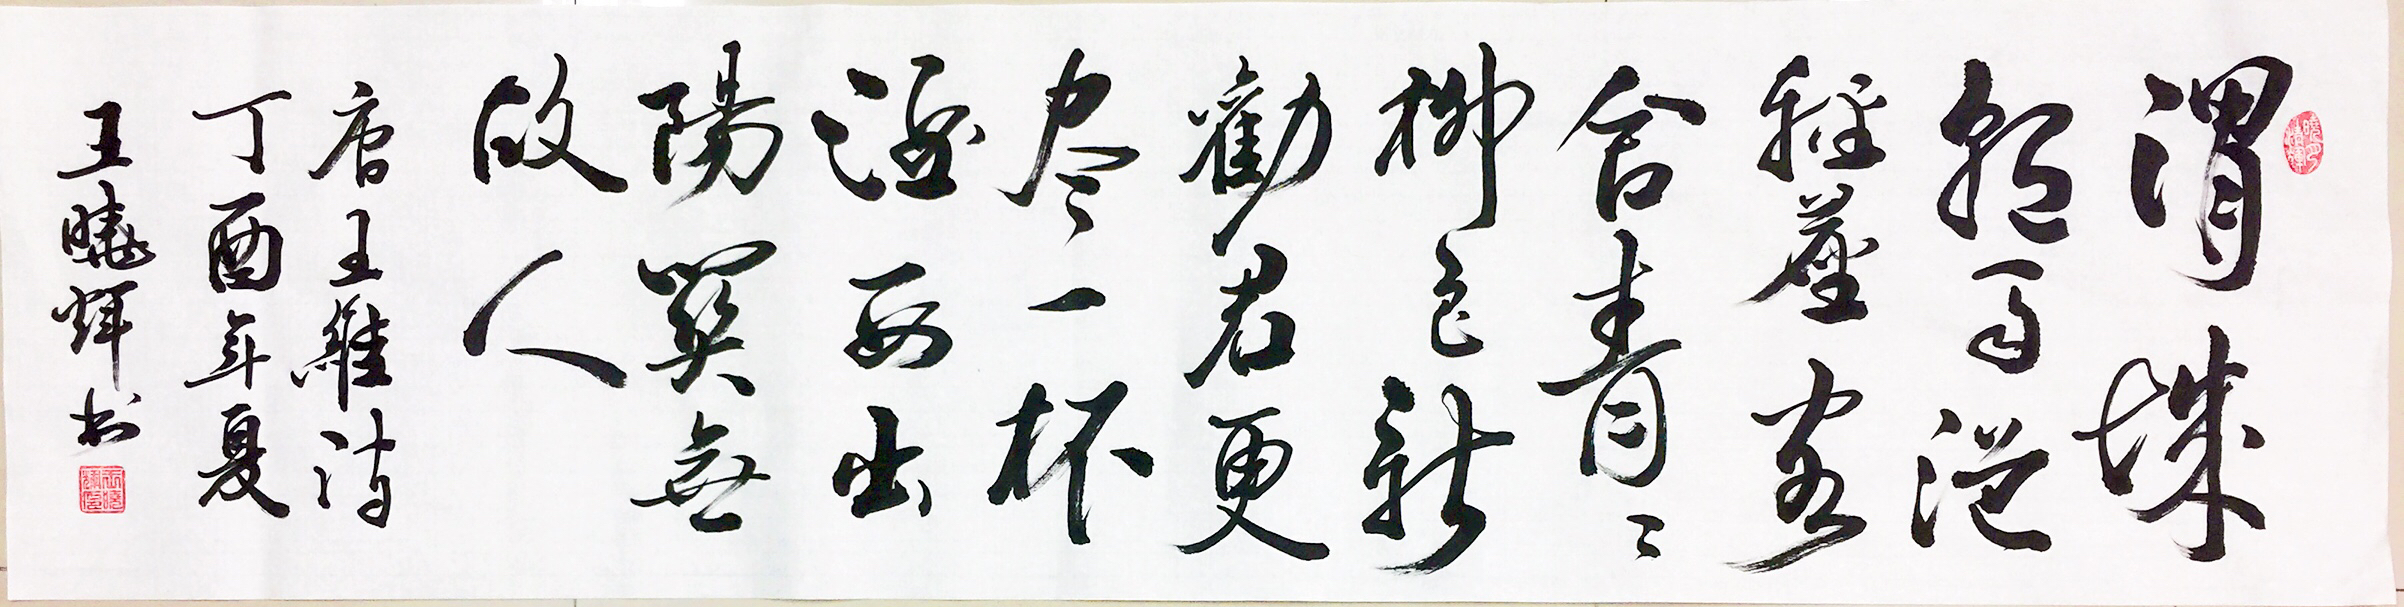 渭城
朝雨浥
輕塵客
舍青〻
柳色新
勸君更
尽一杯
酒西出
陽關無
故人
唐王維诗
丁酉年夏
王曉輝书